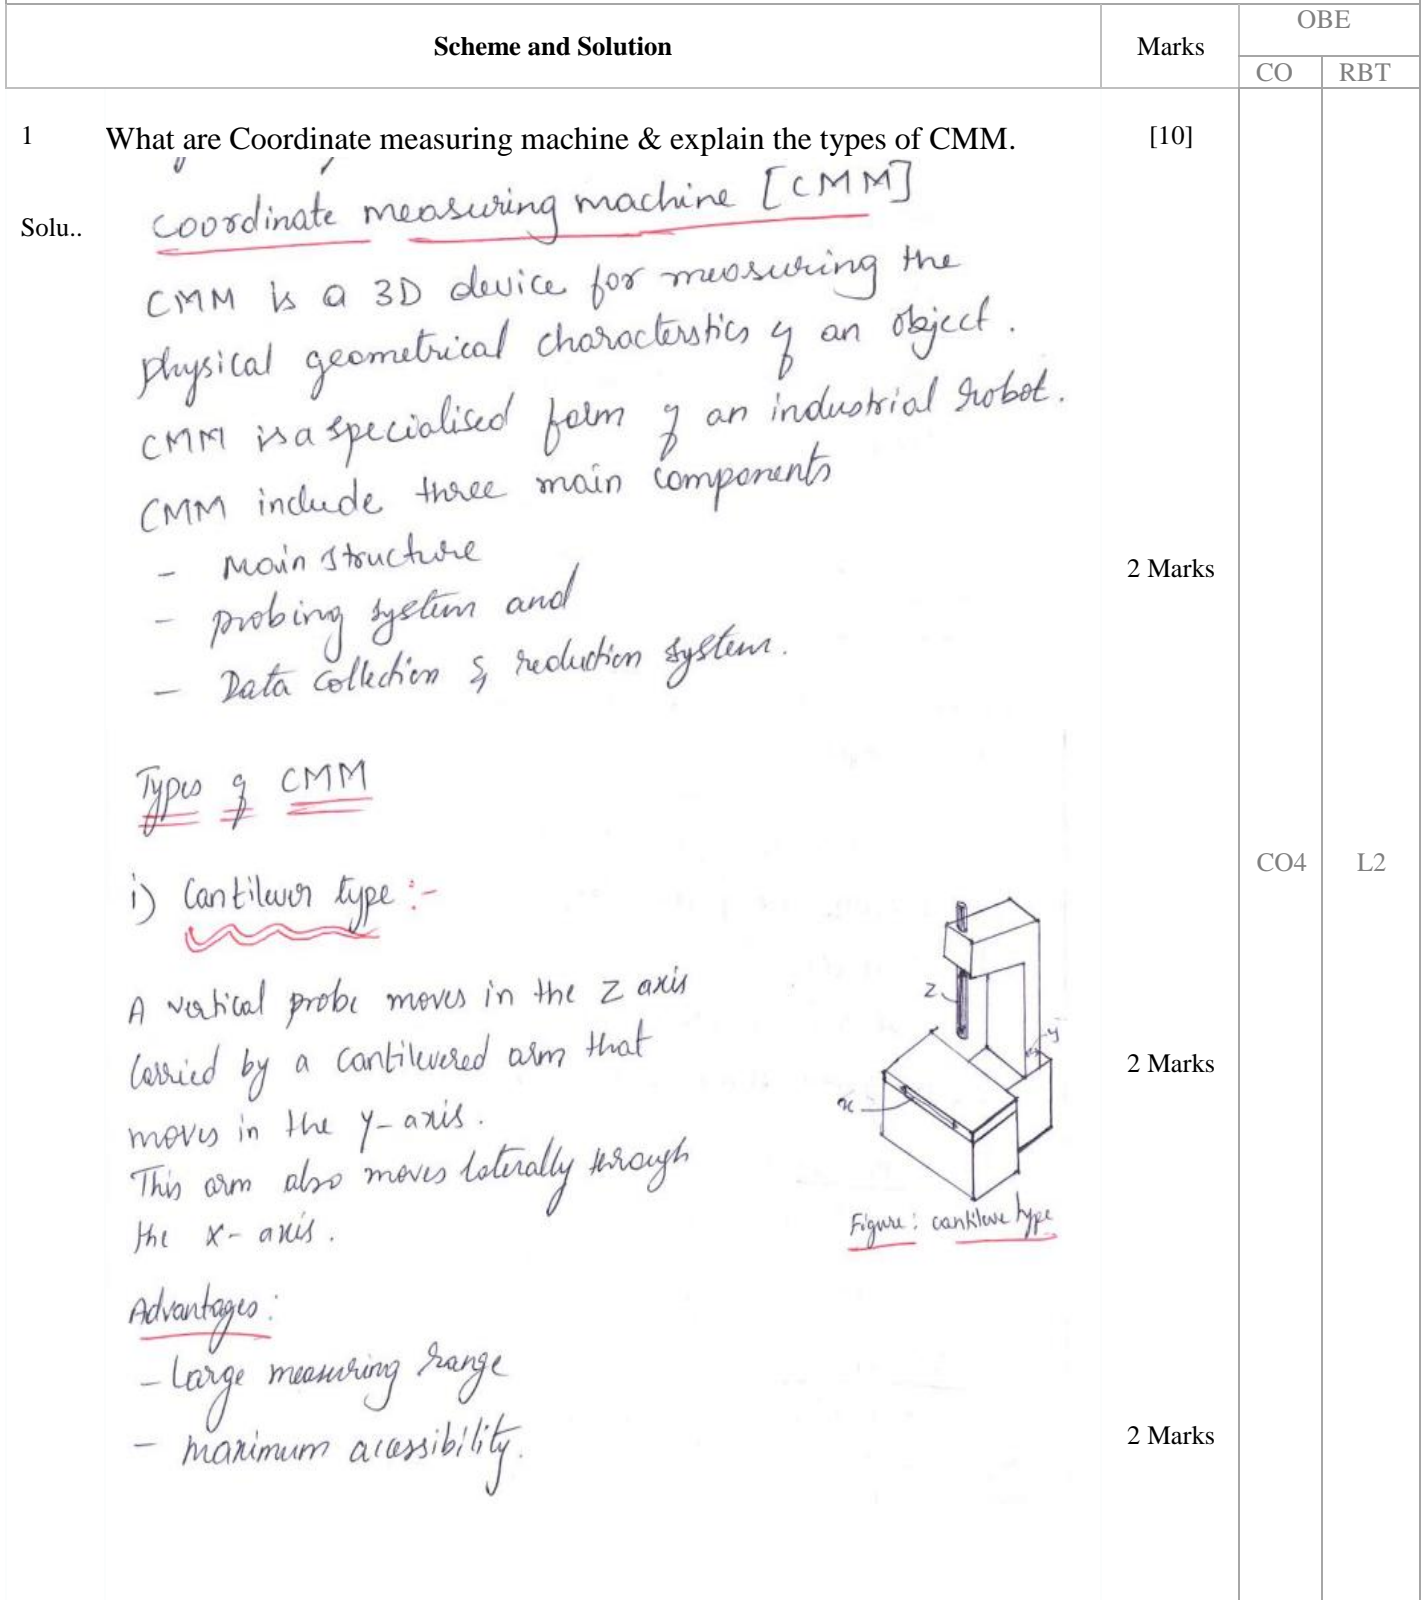 OBE
Scheme and Solution Marks
CO RBT
1 What are Coordinate measuring machine & explain the types of CMM. [10]
Solu.. Coordinate measuring machine [CMM]
CMM is a 3D device for measuring the
physical geometrical characterstics of an object.
CMM is a specialised form of an industrial robot.
CMM include three main components
- Main structure
2 Marks
- probing system and
- Data collection & reduction system.
Types of CMM
CO4 L2
i) Cantilever type :-
A vertical probe moves in the Z axis
Carried by a cantilevered arm that
2 Marks
moves in the y-axis.
This arm also moves laterally through
the x-axis.
z
y
x
Figure: cantileve type
Advantages:
- Large measuring range
- maximum acessibility.
2 Marks